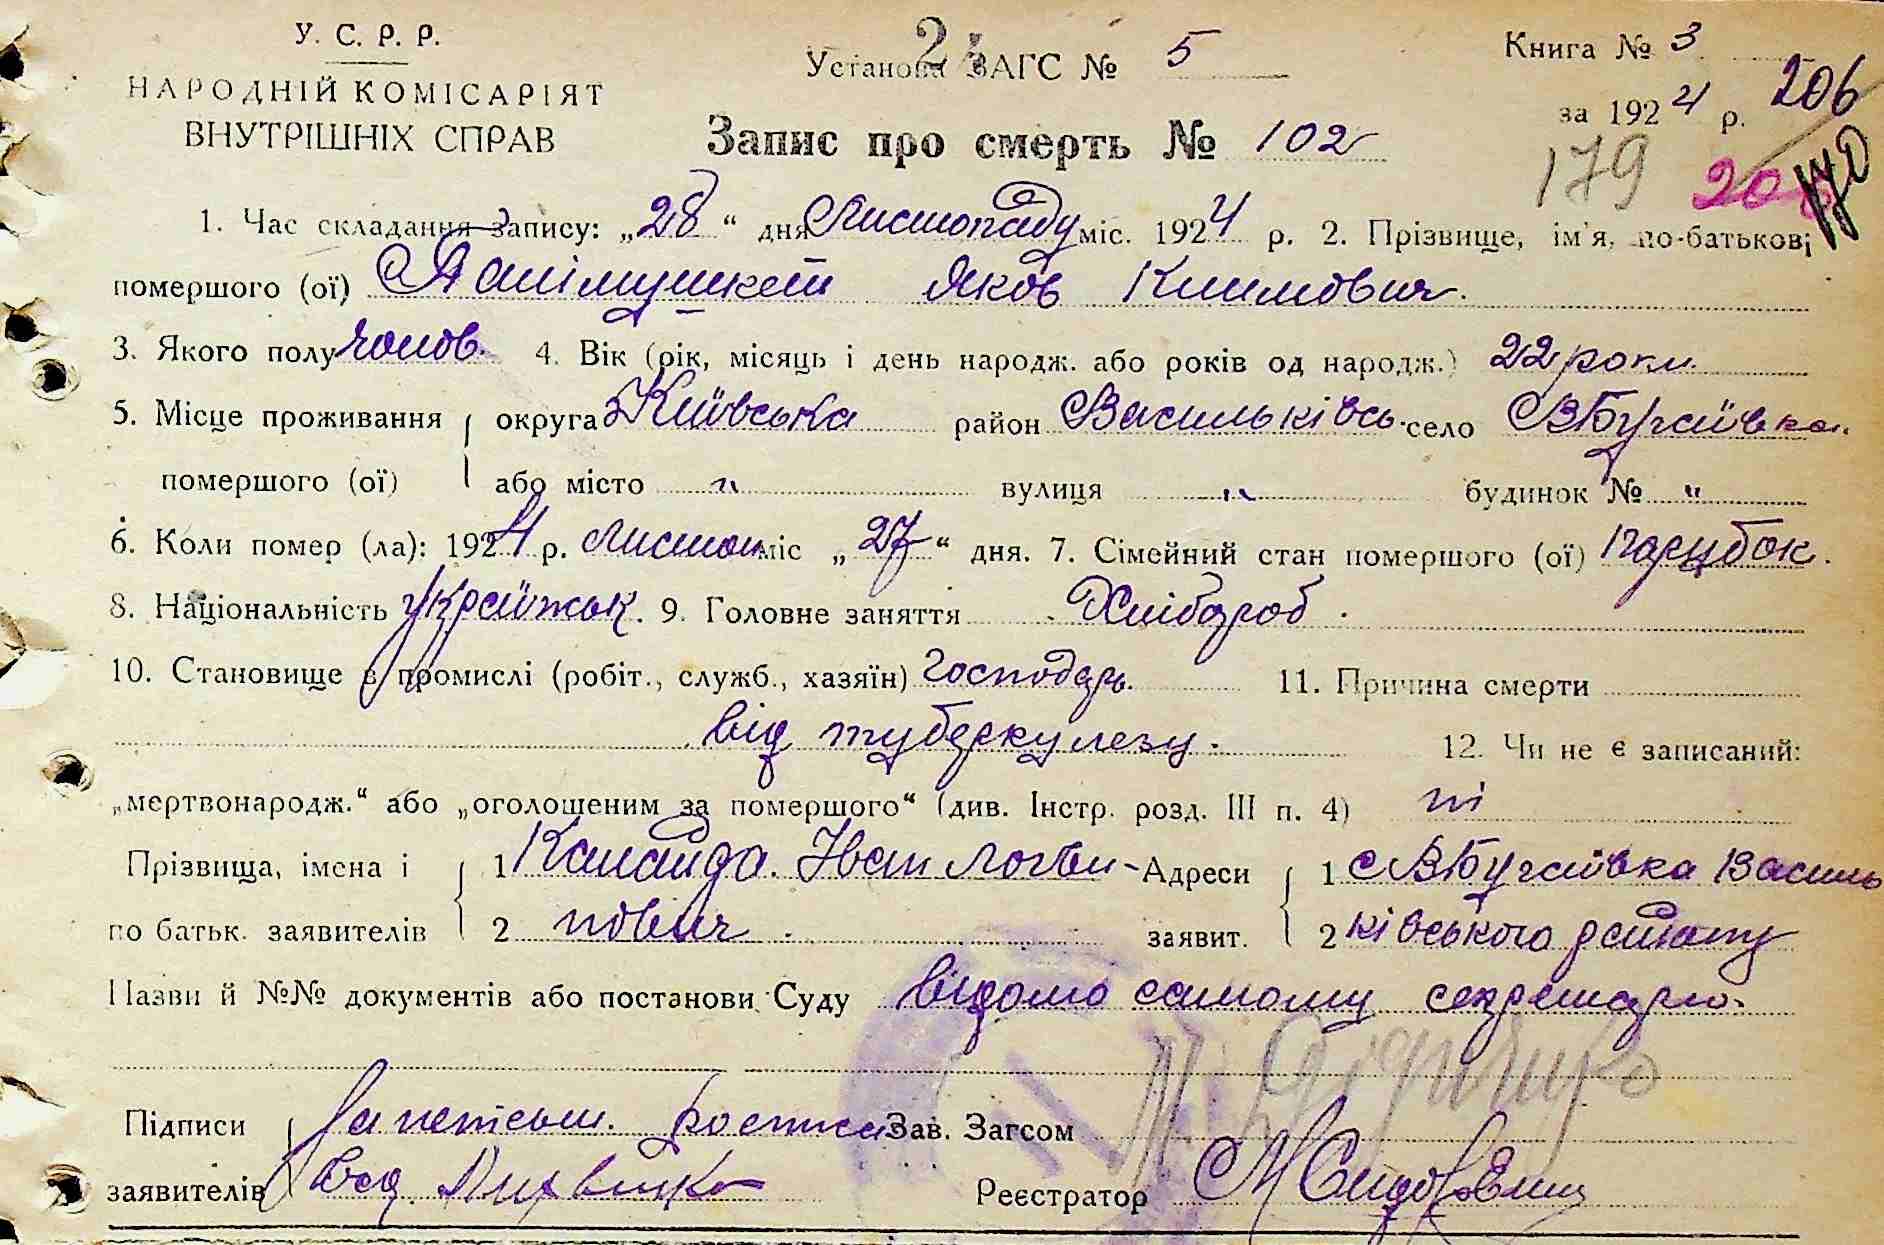 У. С. Р. Р.
НАРОДНІЙ КОМІСАРІЯТ
ВНУТРІШНІХ СПРАВ
Установа ЗАГС № 5
Книга № 3
за 1924 р. 206
Запис про смерть № 102
179 206 170
1. Час складання запису: „28“ дня Листопаду міс. 1924 р. 2. Прізвище, ім'я, по-батькові
помершого (ої) Яков Климович.
3. Якого полу чолов. 4. Вік (рік, місяць і день народж. або років од народж.) 22 роки.
5. Місце проживання округа Київська район Васильківсь. село В Бугаївка.
помершого (ої) або місто " вулиця " будинок № "
6. Коли помер (ла): 1924 р. Листоп міс „27“ дня. 7. Сімейний стан помершого (ої) парубок.
8. Національність 9. Головне заняття Хлібороб.
10. Становище в промислі (робіт., служб., хазяїн) господарь. 11. Причина смерти
від туберкулезу. 12. Чи не є записаний:
„мертвонародж.“ або „оголошеним за помершого“ (див. Інстр. розд. III п. 4) ні
Прізвища, імена і 1 Каланда. Іван Логви- Адреси 1 с В Бугаївка Василь
по батьк. заявителів 2 нович. заявит. 2 ківського району
Назви й №№ документів або постанови Суду відомо самому секретарю.
Підписи За неписьм. Зав. Загсом
заявителів Реєстратор